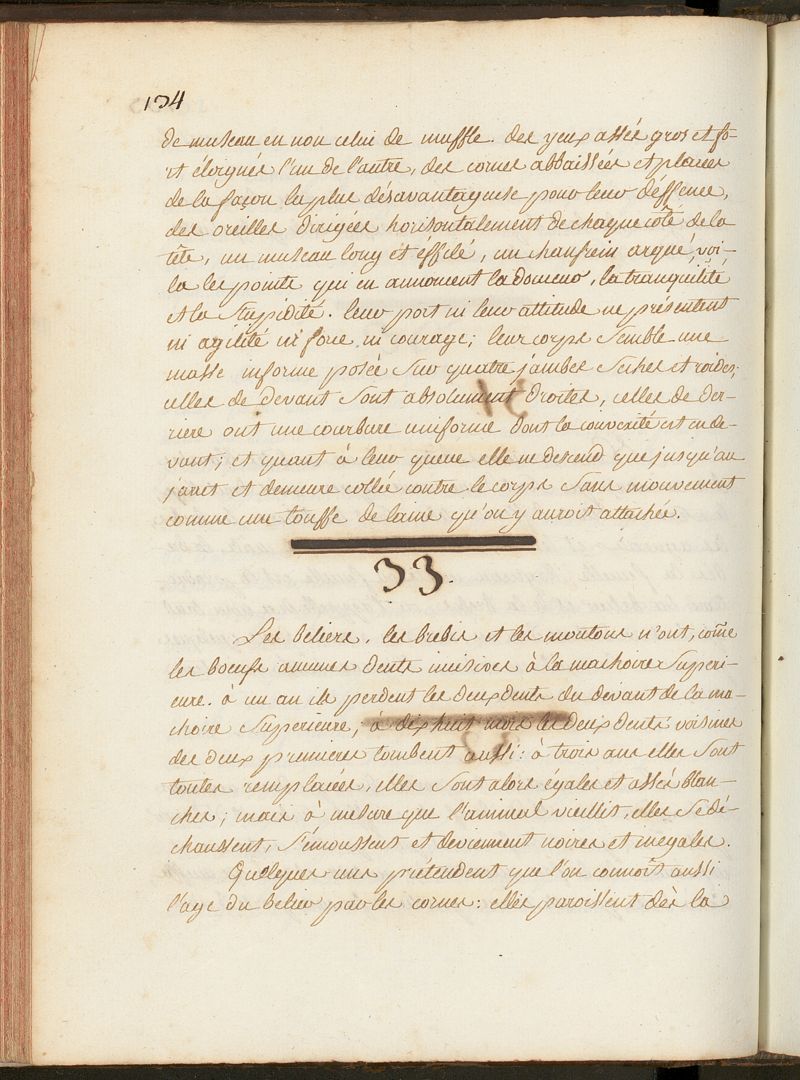 134
de museau en non celui de muffle. des yeux assés gros et fo-
rt éloignés l'un de l'autre, des cornes abbaissées et placées
de la façon la plus désavantageuse pour leur déffence,
des oreilles dirigées horisontalement de chaque côté de la
tête, un museau long et éffilé, un chanfrein arqué, voi-
la les points qui en annoncent la douceur, la tranquilité
et la stupidité. leur port ni leur attitude ne présentent
ni agilité ni force ni courage; leur corps semble une
masse informe posée sur quatre jambes seches et roides;
celles de devant sont absolument droites, celles de der-
riere ont une courbure uniforme dont la convexité est en de-
vant; et quant à leur queue elle ne descend que jusqu'au
jaret et demeure collée contre le corps sans mouvement
comme une touffe de laine qu'on y auroit attachée.
33.
Les beliers, les brebis et les moutons n'ont, coñe
les boeufs aucunes dents incisives à la machoire Superi-
eure. à un an ils perdent les deux dents du devant de la ma-
choire Superieure; à dix huit mois les deux dents voisines
des deux premieres tombent aussi: à trois ans elles sont
toutes remplacées, elles sont alors égales et assés blan-
ches; mais à mesure que l'animal vieillit, elles se dé-
chaussent, s'émoussent et deviennent noires et inegales.
Quelques uns prétendent que l'on connoît aussi
l'age du belier par les cornes: elles paroissent dès la